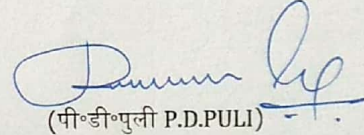 (पी॰डी॰पुली P.D.PULI)